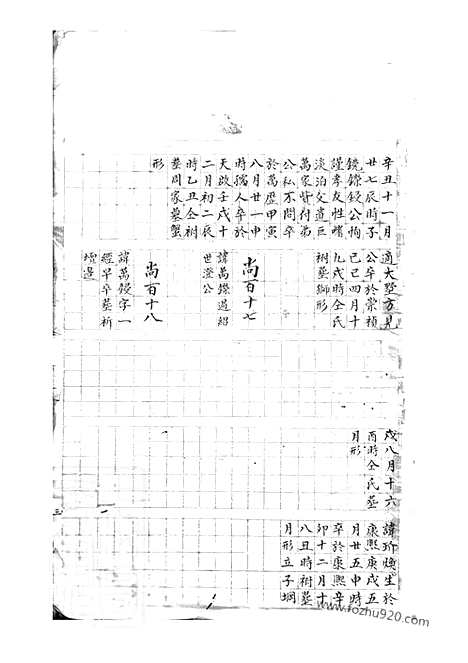 辛丑十一月
廿七辰時子
鐃鑅鋑公恂
謹孝友性嗜
淡泊文遺巨
萬家皆付弟
公私不問卒
於萬歷甲寅
八月廿一申
時孺人卒於
天啟壬戌十
二月初二辰
時乙丑仝祔
塟同家墓蟹
形
適大墅方見
公卒於崇禎
己巳四月十
九戌時仝氏
祔塟獅形
尚百十七
諱萬鑅過紹
世澄公
尚百十八
諱萬鋑字一
經早卒塟祈
壇邉
戌八月十六
酉時仝氏塟
月形
諱珎煥生於
康熙庚戌五
月廿五申時
卒於康熙辛
卯十二月十
八丑時祔塟
月形立子堈
www.fozhu920.com